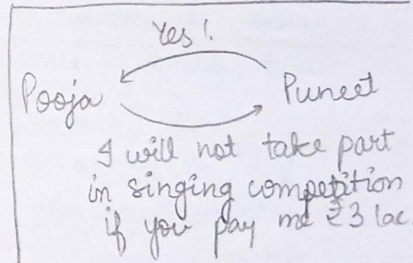 Yes!
Pooja Puneet
I will not take part
in singing competition
if you pay me ₹3 lac.